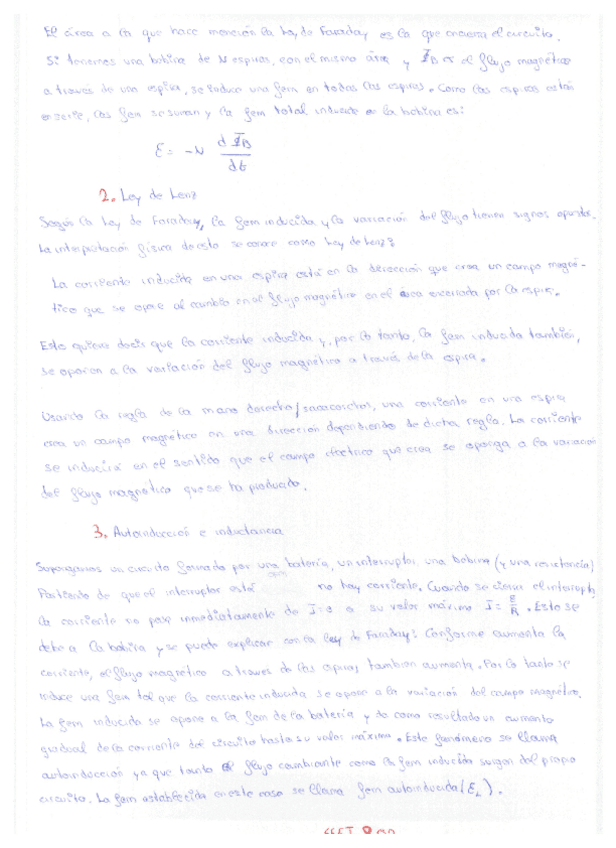 El área a la que hace mención la ley de Faraday es la que encierra el circuito.
Si tenemos una bobina de N espiras, con el mismo área y Φ_B es el flujo magnético
a través de una espira, se induce una fem en todas las espiras. Como las espiras están
en serie, las fem se suman y la fem total inducida en la bobina es:
ε = -N dΦ_B/dt
2. Ley de Lenz
Según la ley de Faraday, la fem inducida y la variación del flujo tienen signos opuestos.
La interpretación física de esto se conoce como ley de Lenz:
La corriente inducida en una espira está en la dirección que crea un campo magné-
tico que se opone al cambio en el flujo magnético en el área encerrada por la espira.
Esto quiere decir que la corriente inducida y, por lo tanto, la fem inducida también,
se oponen a la variación del flujo magnético a través de la espira.
Usando la regla de la mano derecha/sacacorchos, una corriente en una espira
crea un campo magnético en una dirección dependiendo de dicha regla. La corriente
se inducirá en el sentido que el campo eléctrico que crea se oponga a la variación
del flujo magnético que se ha producido.
3. Autoinducción e inductancia
Supongamos un circuito formado por una batería, un interruptor, una bobina (y una resistencia)
Partiendo de que el interruptor está no hay corriente. Cuando se cierra el interruptor
la corriente no pasa inmediatamente de I=0 a su valor máximo I = ε/R. Esto se
debe a la bobina y se puede explicar con la ley de Faraday: Conforme aumenta la
corriente, el flujo magnético a través de las espiras también aumenta. Por lo tanto se
induce una fem tal que la corriente inducida se opone a la variación del campo magnético.
La fem inducida se opone a la fem de la batería y da como resultado un aumento
gradual de la corriente del circuito hasta su valor máximo. Este fenómeno se llama
autoinducción ya que tanto el flujo cambiante como la fem inducida surgen del propio
circuito. La fem establecida en este caso se llama fem autoinducida (ε_L).